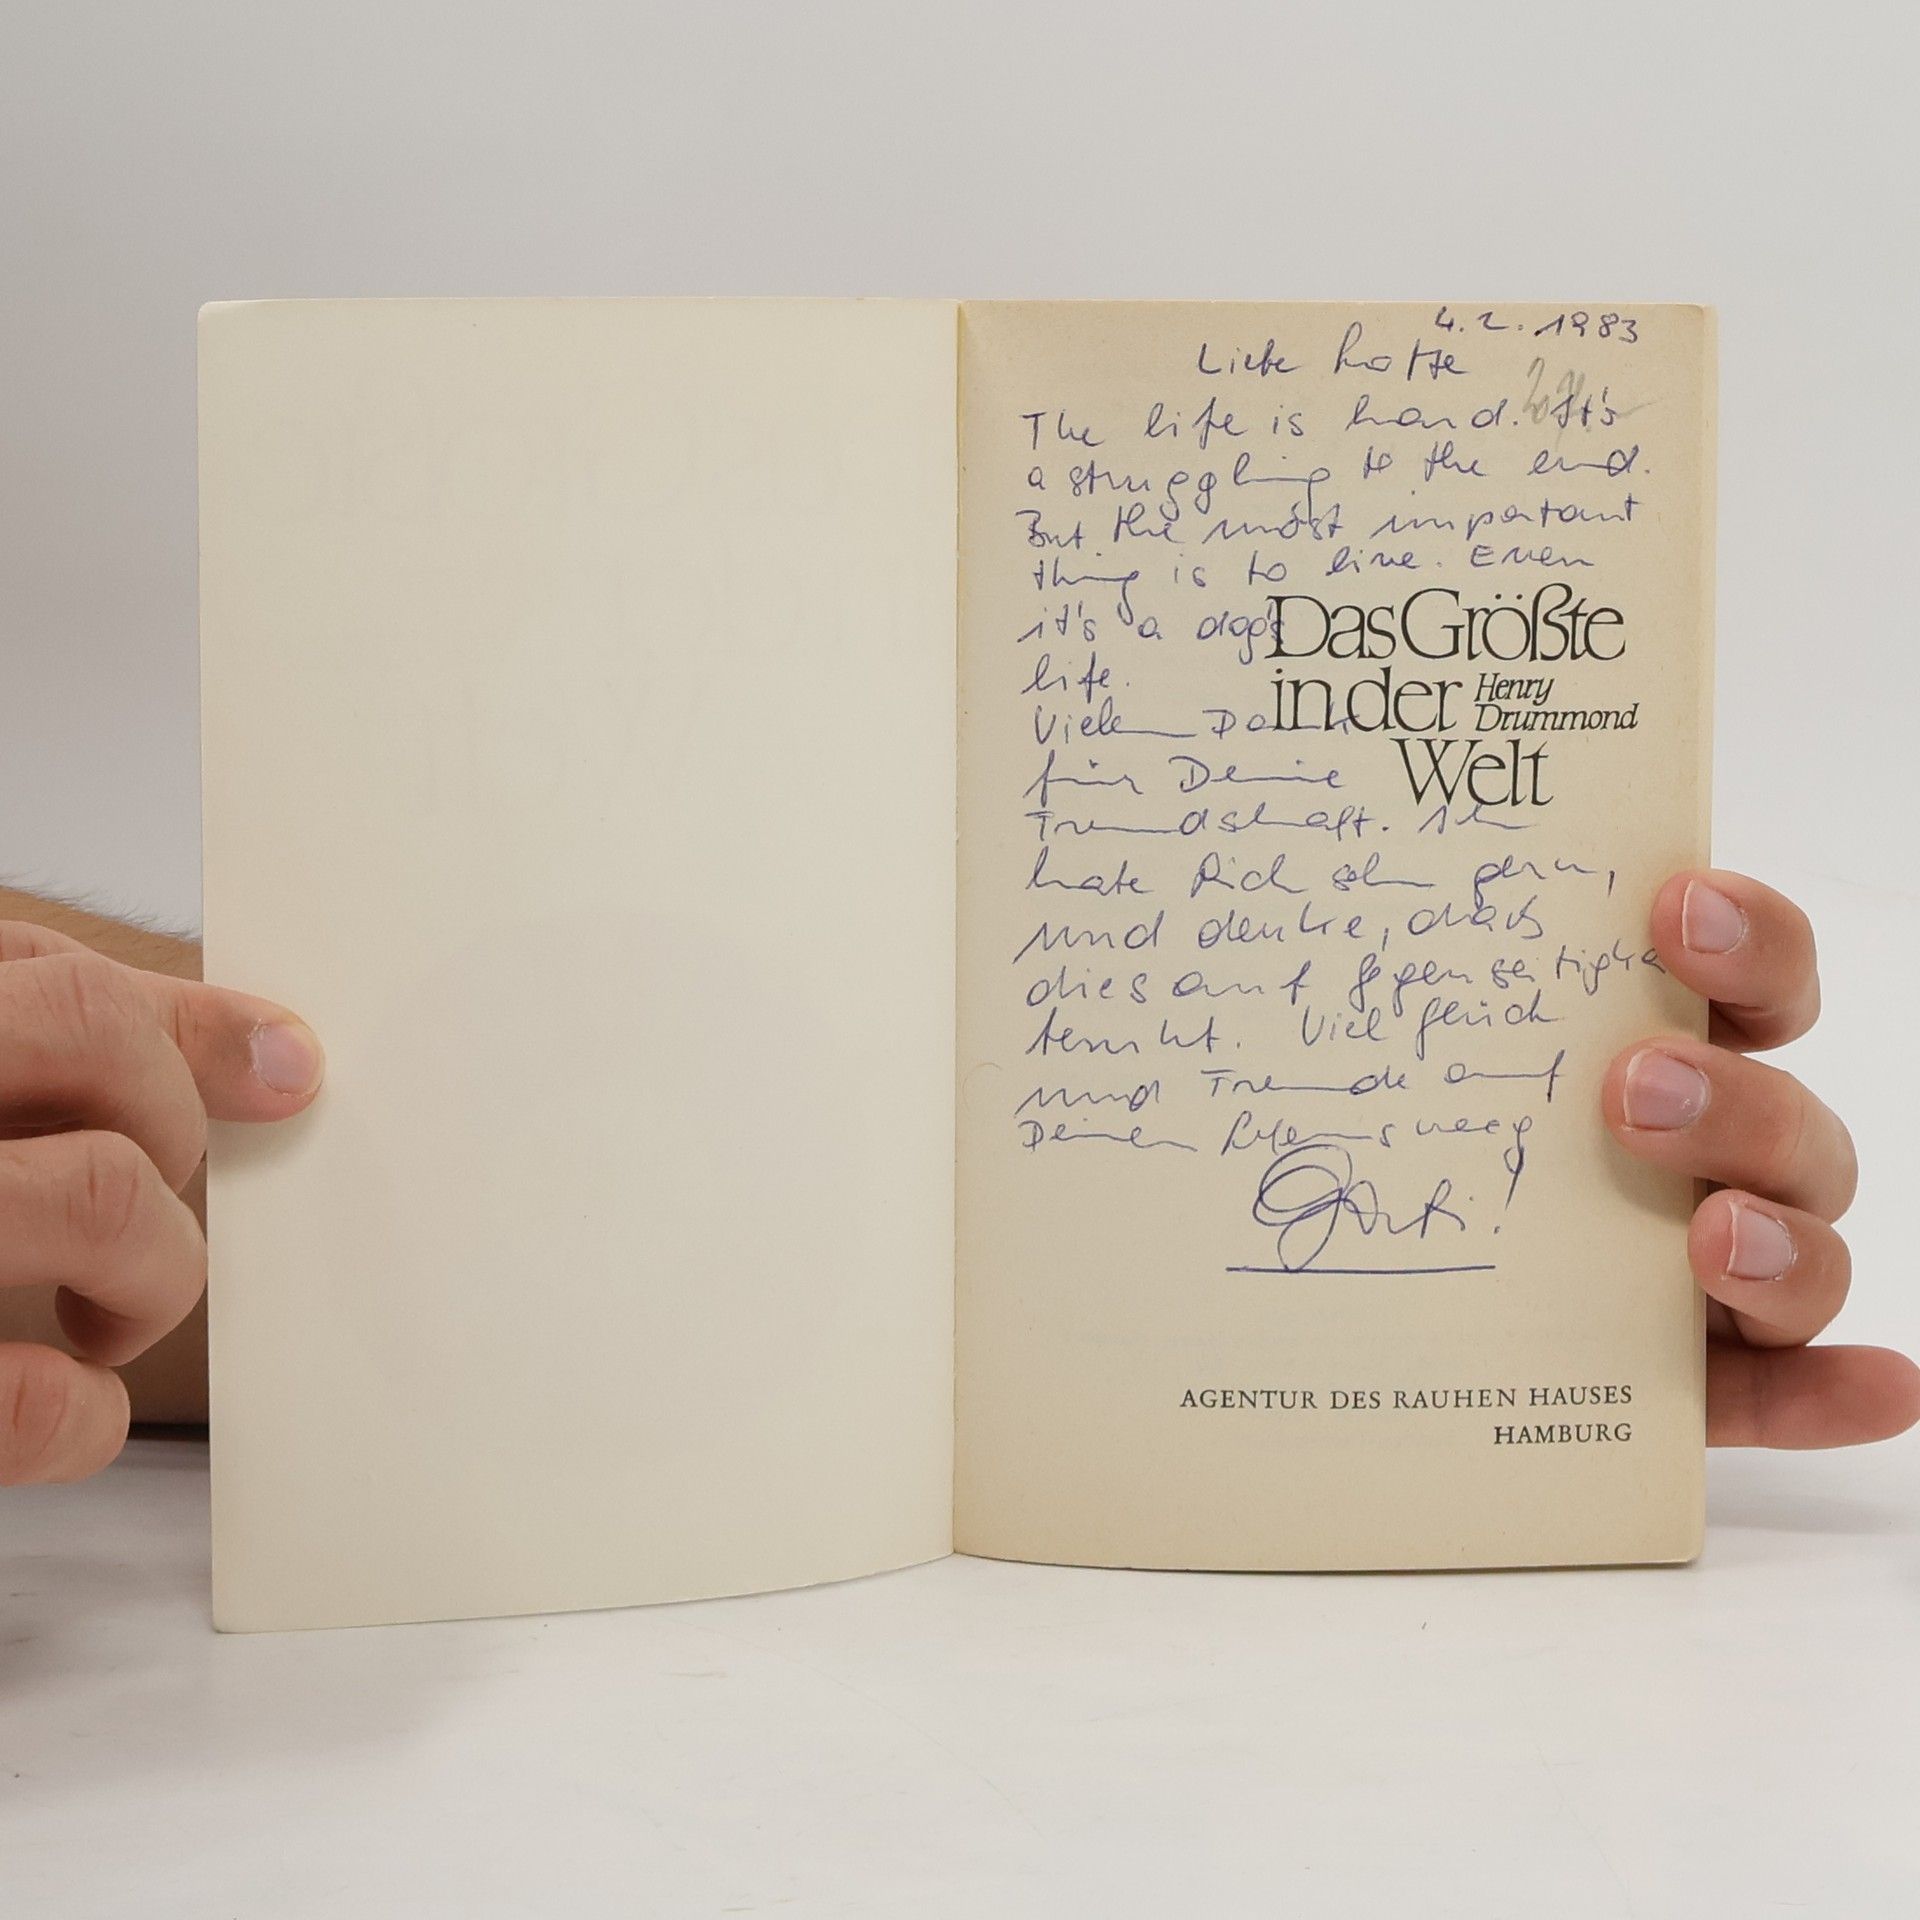 4.2.1983
Liebe Lotte
The life is hard. It's
a struggling to the end.
But the most important
thing is to live. Even
it's a dog's
life.
Das Größte
in der
Henry
Drummond
Welt
Vielen Dank
für Deine
Freundschaft. Ich
habe Dich sehr gern,
und denke, daß
dies auf Gegenseitigkeit
beruht. Viel Glück
und Freude auf
Deinen Lebensweg
!
AGENTUR DES RAUHEN HAUSES
HAMBURG